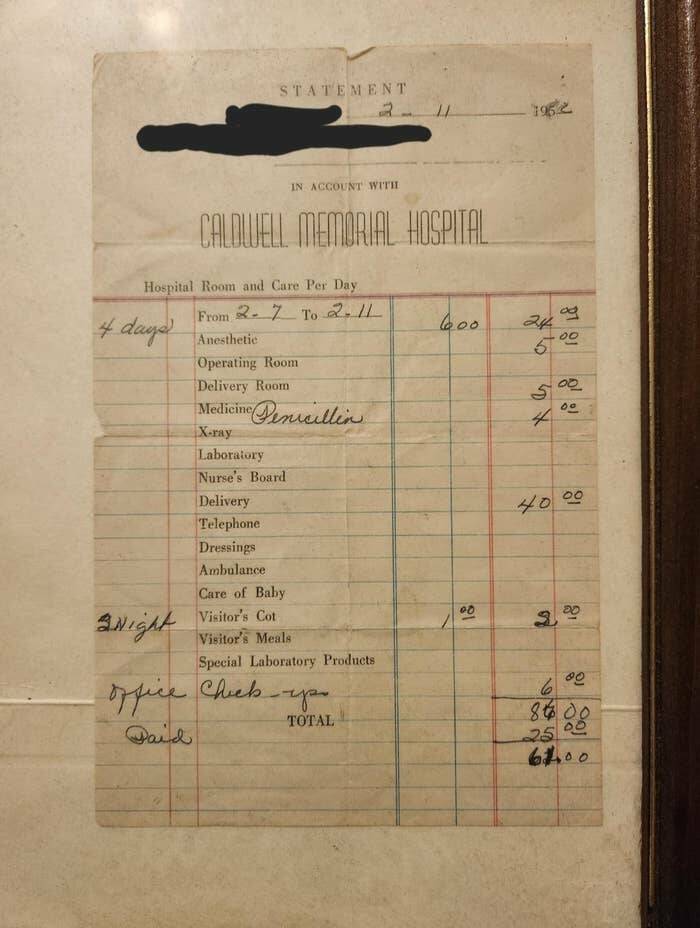 STATEMENT
2-11 195
IN ACCOUNT WITH
CALDWELL MEMORIAL HOSPITAL
Hospital Room and Care Per Day
4 days From 2-7 To 2-11 6 00 24 00
Anesthetic 5 00
Operating Room
Delivery Room 5 00
Medicine Penicillin 4 00
X-ray
Laboratory
Nurse's Board
Delivery 40 00
Telephone
Dressings
Ambulance
Care of Baby
Night Visitor's Cot 1 00 00
Visitor's Meals
Special Laboratory Products
Office Check-ups 6 00
TOTAL 86 00
Paid 25 00
61.00